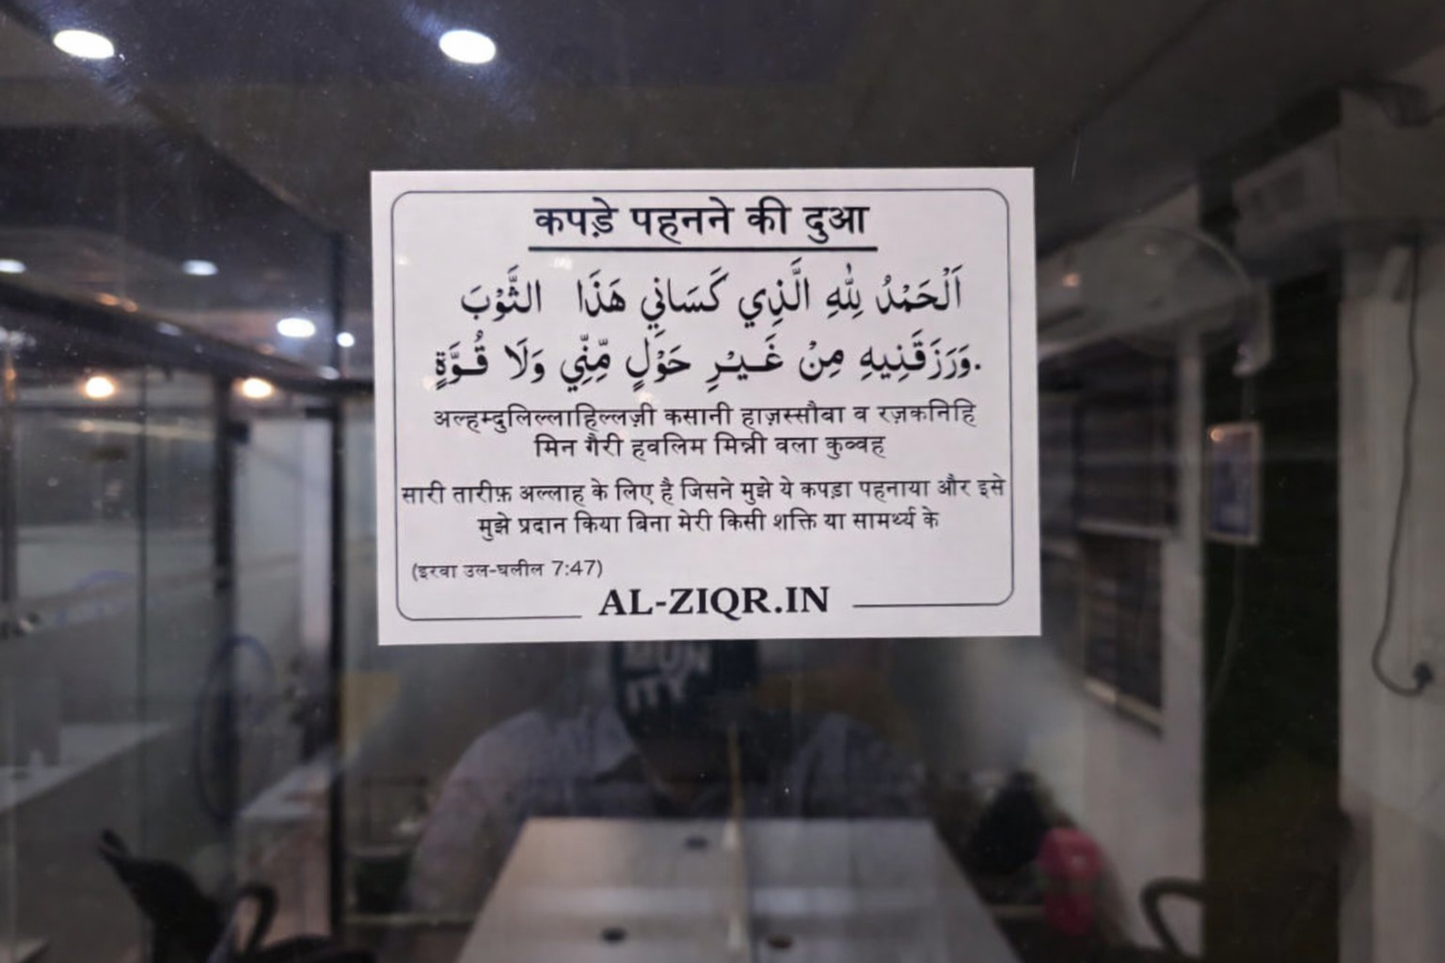 कपड़े पहनने की दुआ
اَلْحَمْدُ لِلّٰهِ الَّذِي كَسَانِي هَذَا الثَّوْبَ
وَرَزَقَنِيهِ مِنْ غَيْرِ حَوْلٍ مِّنِّي وَلَا قُوَّةٍ.
अल्हम्दुलिल्लाहिल्लज़ी कसानी हाज़स्सौबा व रज़कनिहि
मिन गैरी हवलिम मिन्नी वला कुव्वह
सारी तारीफ़ अल्लाह के लिए है जिसने मुझे ये कपड़ा पहनाया और इसे
मुझे प्रदान किया बिना मेरी किसी शक्ति या सामर्थ्य के
(इरवा उल-घलील 7:47)
AL-ZIQR.IN